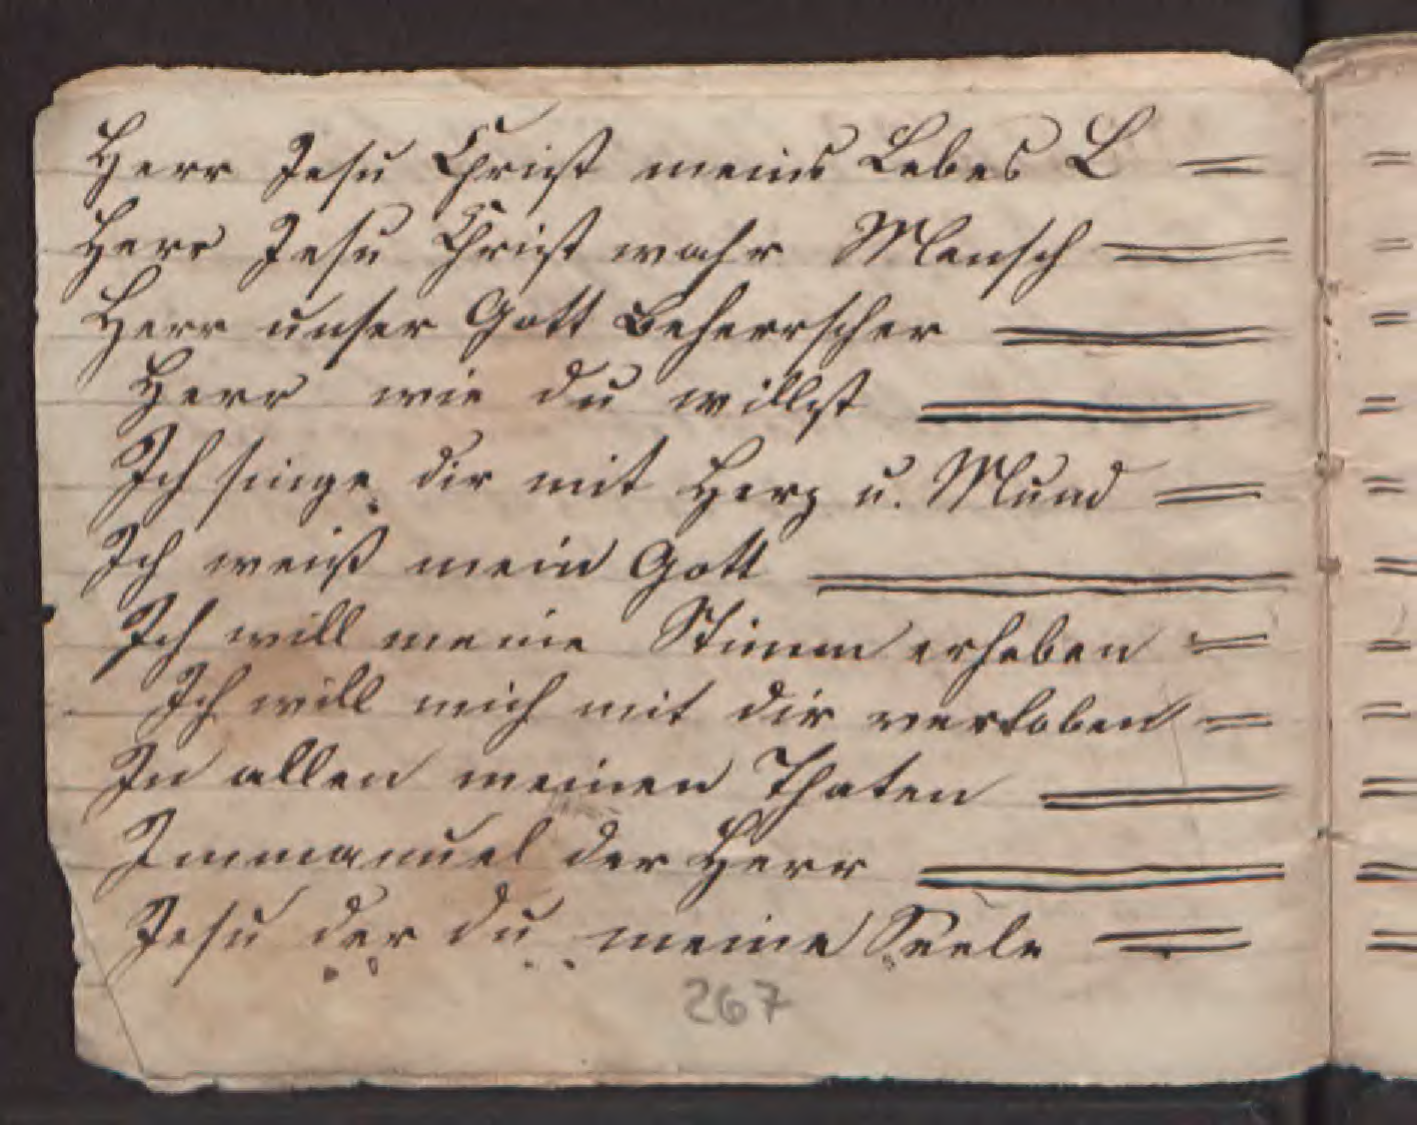 Herr Jesu Christ meins Lebes L =
Herr Jesu Christ wahr Mensch =
Herr unser Gott Beherrscher =
Herr wie du willst =
Ich singe dir mit Herz u. Mund =
Ich weiß mein Gott =
Ich will meine Stimm erheben =
Ich will mich mit dir verloben =
In allen meinen Thaten =
Immanuel der Herr =
Jesu der du meine Seele =
267